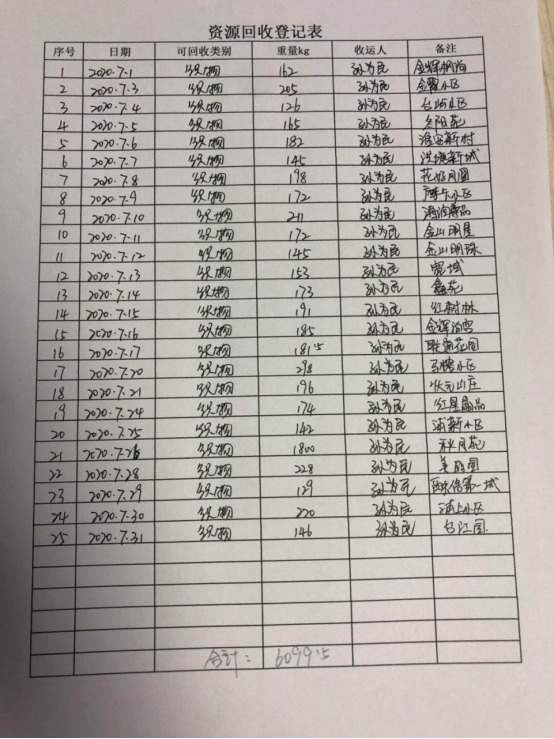 资源回收登记表
序号 日期 可回收类别 重量kg 收运人 备注
1 2020.7.1 织物 162 孙为民 金辉
2 2020.7.3 织物 205 孙为民 金翠小区
3 2020.7.4 织物 126 孙为民 小区
4 2020.7.5 织物 165 孙为民
5 2020.7.6 织物 182 孙为民 新村
6 2020.7.7 织物 145 孙为民 新城
7 2020.7.8 织物 198 孙为民 花好月圆
8 2020.7.9 织物 172 孙为民 摩卡小区
9 2020.7.10 织物 211 孙为民
10 2020.7.11 织物 172 孙为民 金山明星
11 2020.7.12 织物 145 孙为民 金山明珠
12 2020.7.13 织物 153 孙为民 宽城
13 2020.7.14 织物 173 孙为民 鑫苑
14 2020.7.15 织物 191 孙为民 红树林
15 2020.7.16 织物 185 孙为民 金辉
16 2020.7.17 织物 181.5 孙为民 联通花园
17 2020.7.20 织物 298 孙为民 小区
18 2020.7.21 织物 196 孙为民 状元山庄
19 2020.7.24 织物 174 孙为民 红星晶品
20 2020.7.25 织物 142 孙为民 浦新小区
21 2020.7.26 织物 1800 孙为民 秋月苑
22 2020.7.28 织物 228 孙为民 美丽园
23 2020.7.29 织物 129 孙为民 第一城
24 2020.7.30 织物 220 孙为民 浦上小区
25 2020.7.31 织物 146 孙为民 台江园
合计: 6099.5